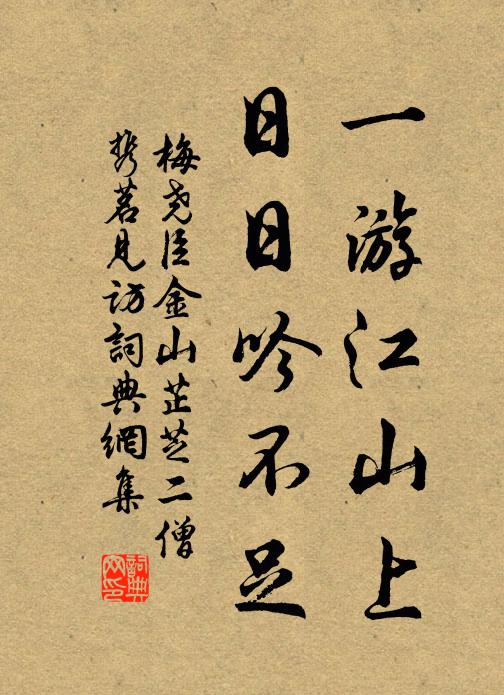 一游江山上
日日吟不足
梅尧臣金山芷芝二僧
携茗見访詞典網集
詞典网印